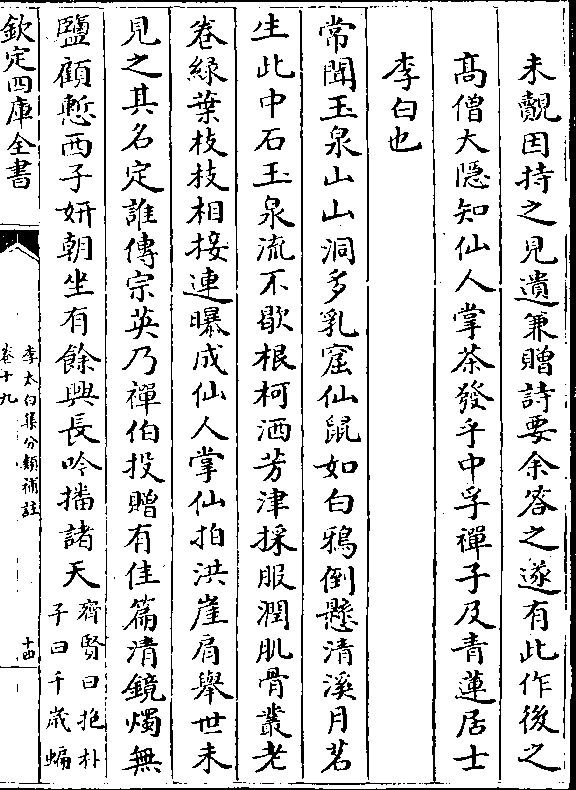 未覿因持之見遺兼贈詩要余答之遂有此作後之
高僧大隠知仙人掌茶發乎中孚禪子及青蓮居士
李白也
常聞玉泉山山洞多乳窟仙鼠如白鴉倒懸清溪月茗
生此中石玉泉流不歇根柯洒芳津採服潤肌骨叢老
卷緑葉枝枝相接連曝成仙人掌仙拍洪崖肩舉世未
見之其名定誰傳宗英乃禪伯投贈有佳篇清鏡燭無
鹽顧慙西子妍朝坐有餘興長吟播諸天
齊賢曰抱朴
子曰千歳蝙
欽定四庫全書
李太白集分類補註
卷十九
十四